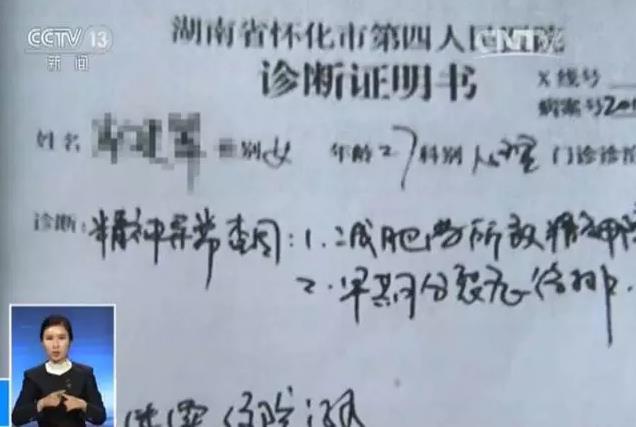 CCTV 13
新闻
湖南省怀化市第四人民医院
CNTV
诊断证明书
X线号
病案号20
姓名 性别女 年龄27科别 门诊
诊断: 精神异常查因: 1. 减肥药所致精神障
2. 早期分裂症待排.
住院